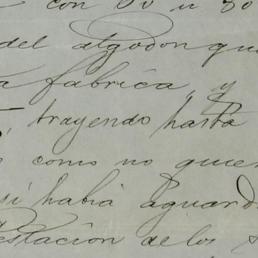 con 60 u 80
del algodon que
a fabrica, y
, trayendo hasta
como no quie
si habia aguard
estacion de los